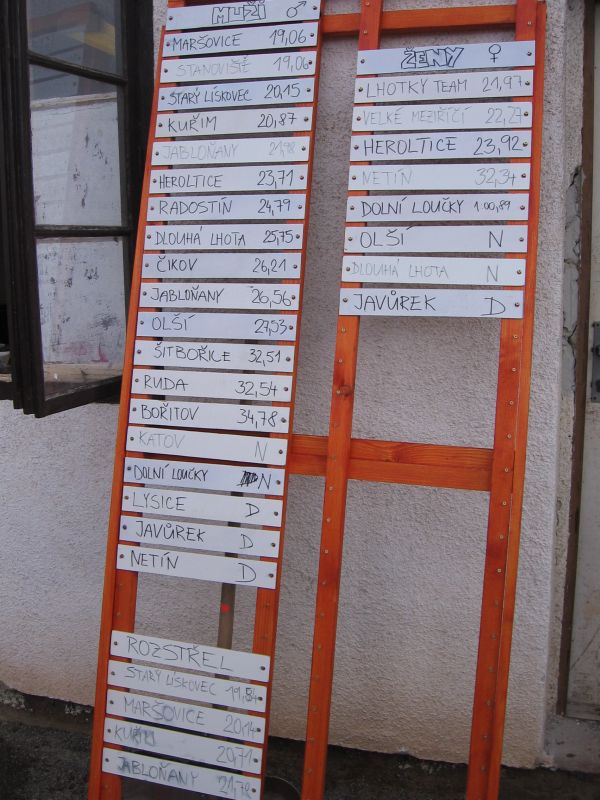 MUŽI ♂
MARŠOVICE 19,06
STANOVIŠTĚ 19,06
STARÝ LÍSKOVEC 20,15
KUŘIM 20,87
JABLOŇANY 21,98
HEROLTICE 23,71
RADOSTÍN 24,79
DLOUHÁ LHOTA 25,75
ČIKOV 26,21
JABLOŇANY 26,56
OLŠÍ 27,53
ŠITBOŘICE 32,51
RUDA 32,54
BOŘITOV 34,78
KATOV N
DOLNÍ LOUČKY N
LYSICE D
JAVŮREK D
NETÍN D
ROZSTŘEL
STARÝ LÍSKOVEC 19,84
MARŠOVICE 20,14
KUŘIM 20,71
JABLOŇANY 21,72
ŽENY ♀
LHOTKY TEAM 21,97
VELKÉ MEZIŘÍČÍ 22,27
HEROLTICE 23,92
NETÍN 32,34
DOLNÍ LOUČKY 1:00,89
OLŠÍ N
DLOUHÁ LHOTA N
JAVŮREK D